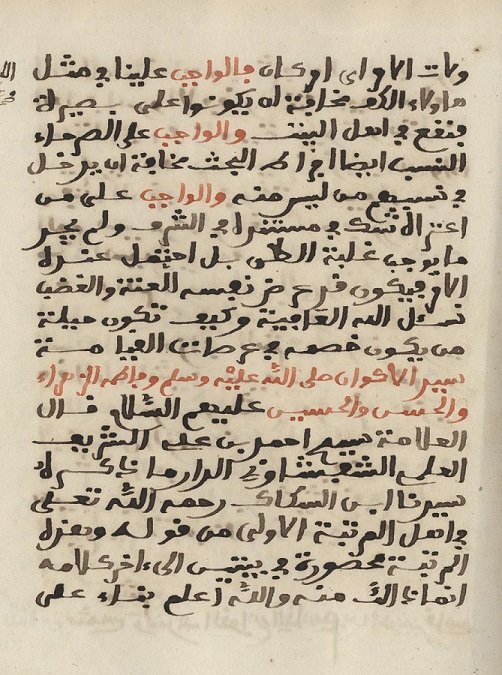 فالواجب علينا في مثل
هاولاء الكف مخافة ان يكونوا على بصيرة
فنقع في اهل البيت والواجب على الصرحاء
النسب ايضا البحث مخافة ان يدخل
في نسبهم من ليس منه والواجب على من
اعتراه شك في مستنده في الشرف ولم يجد
ما يوجب غلبة الظن بل احتمل عنده
الامر فيكون قد عرض نفسه للعنة والغضب
نسئل الله العافية وكيف تكون حيلة
من يكون خصمه في عرصات القيامة
سيد الاكوان صلى الله عليه وسلم وفاطمة الزهراء
والحسن والحسين عليهم السلام قال
العلامة سيد احمد بن علي الشريف
العلمي الشفشاوني الدار ما ذكره
سيدنا ابن السكاك رحمه الله تعلى
في اهل المرتبة الاولى من قوله وهذه
المرتبة محصورة في بيتين الى ءاخر كلامه
انما ذلك منه والله اعلم بناء على